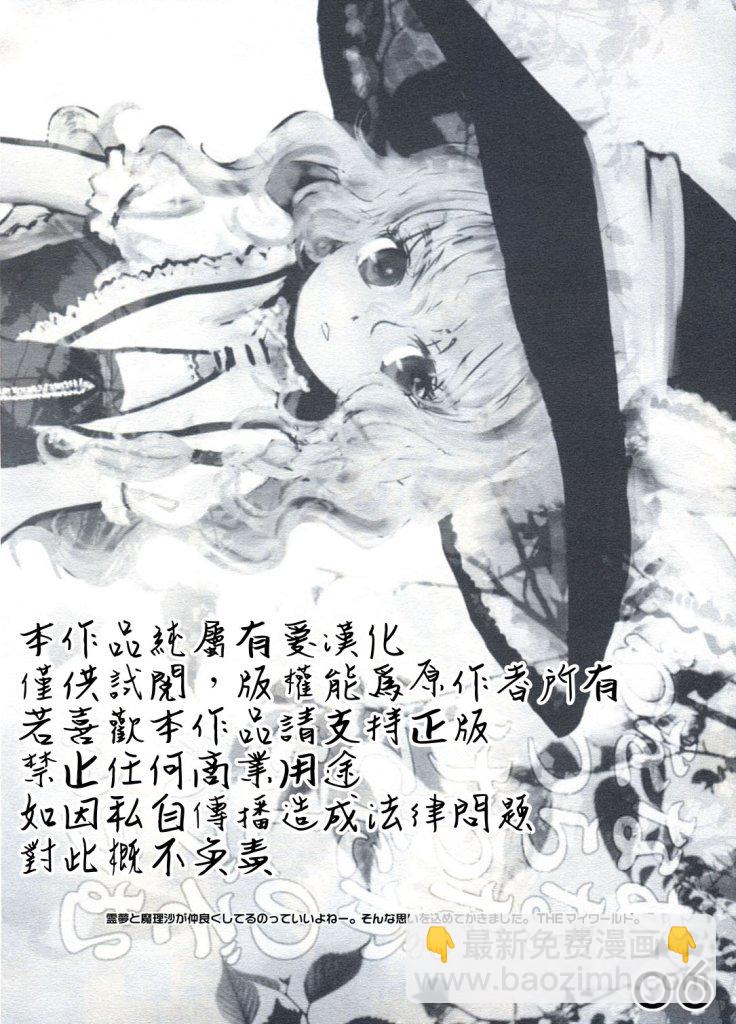 本作品純屬有愛漢化
僅供試閱，版權能爲原作者所有
若喜歡本作品請支持正版
禁止任何商業用途
如因私自傳播造成法律問題
對此概不負責
霊夢と魔理沙が仲良くしてるのっていいよねー。そんな思いを込めてかきました。THEマイワールド。
👇最新免费漫画👇
www.baozimh.com
06